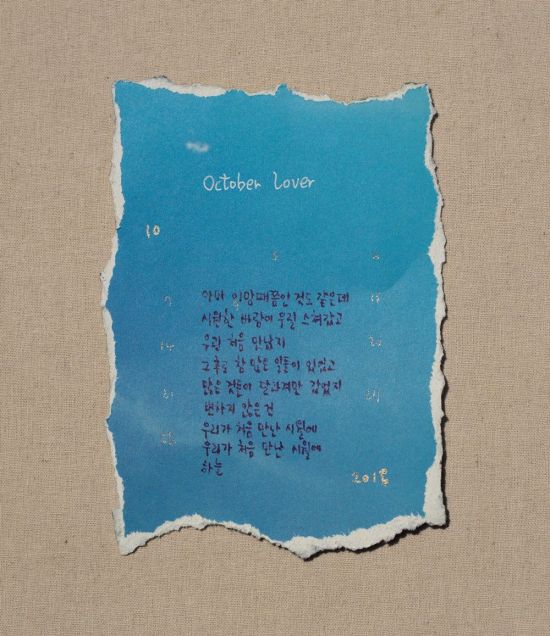 October lover
10
아마 이맘때쯤인 것도 같은데
시원한 바람이 우릴 스쳐갔고
우린 처음 만났지
그 후로 참 많은 일들이 있었고
많은 것들이 달라져만 갔었지
변하지 않은 건
우리가 처음 만난 시월에
우리가 처음 만난 시월에
하늘